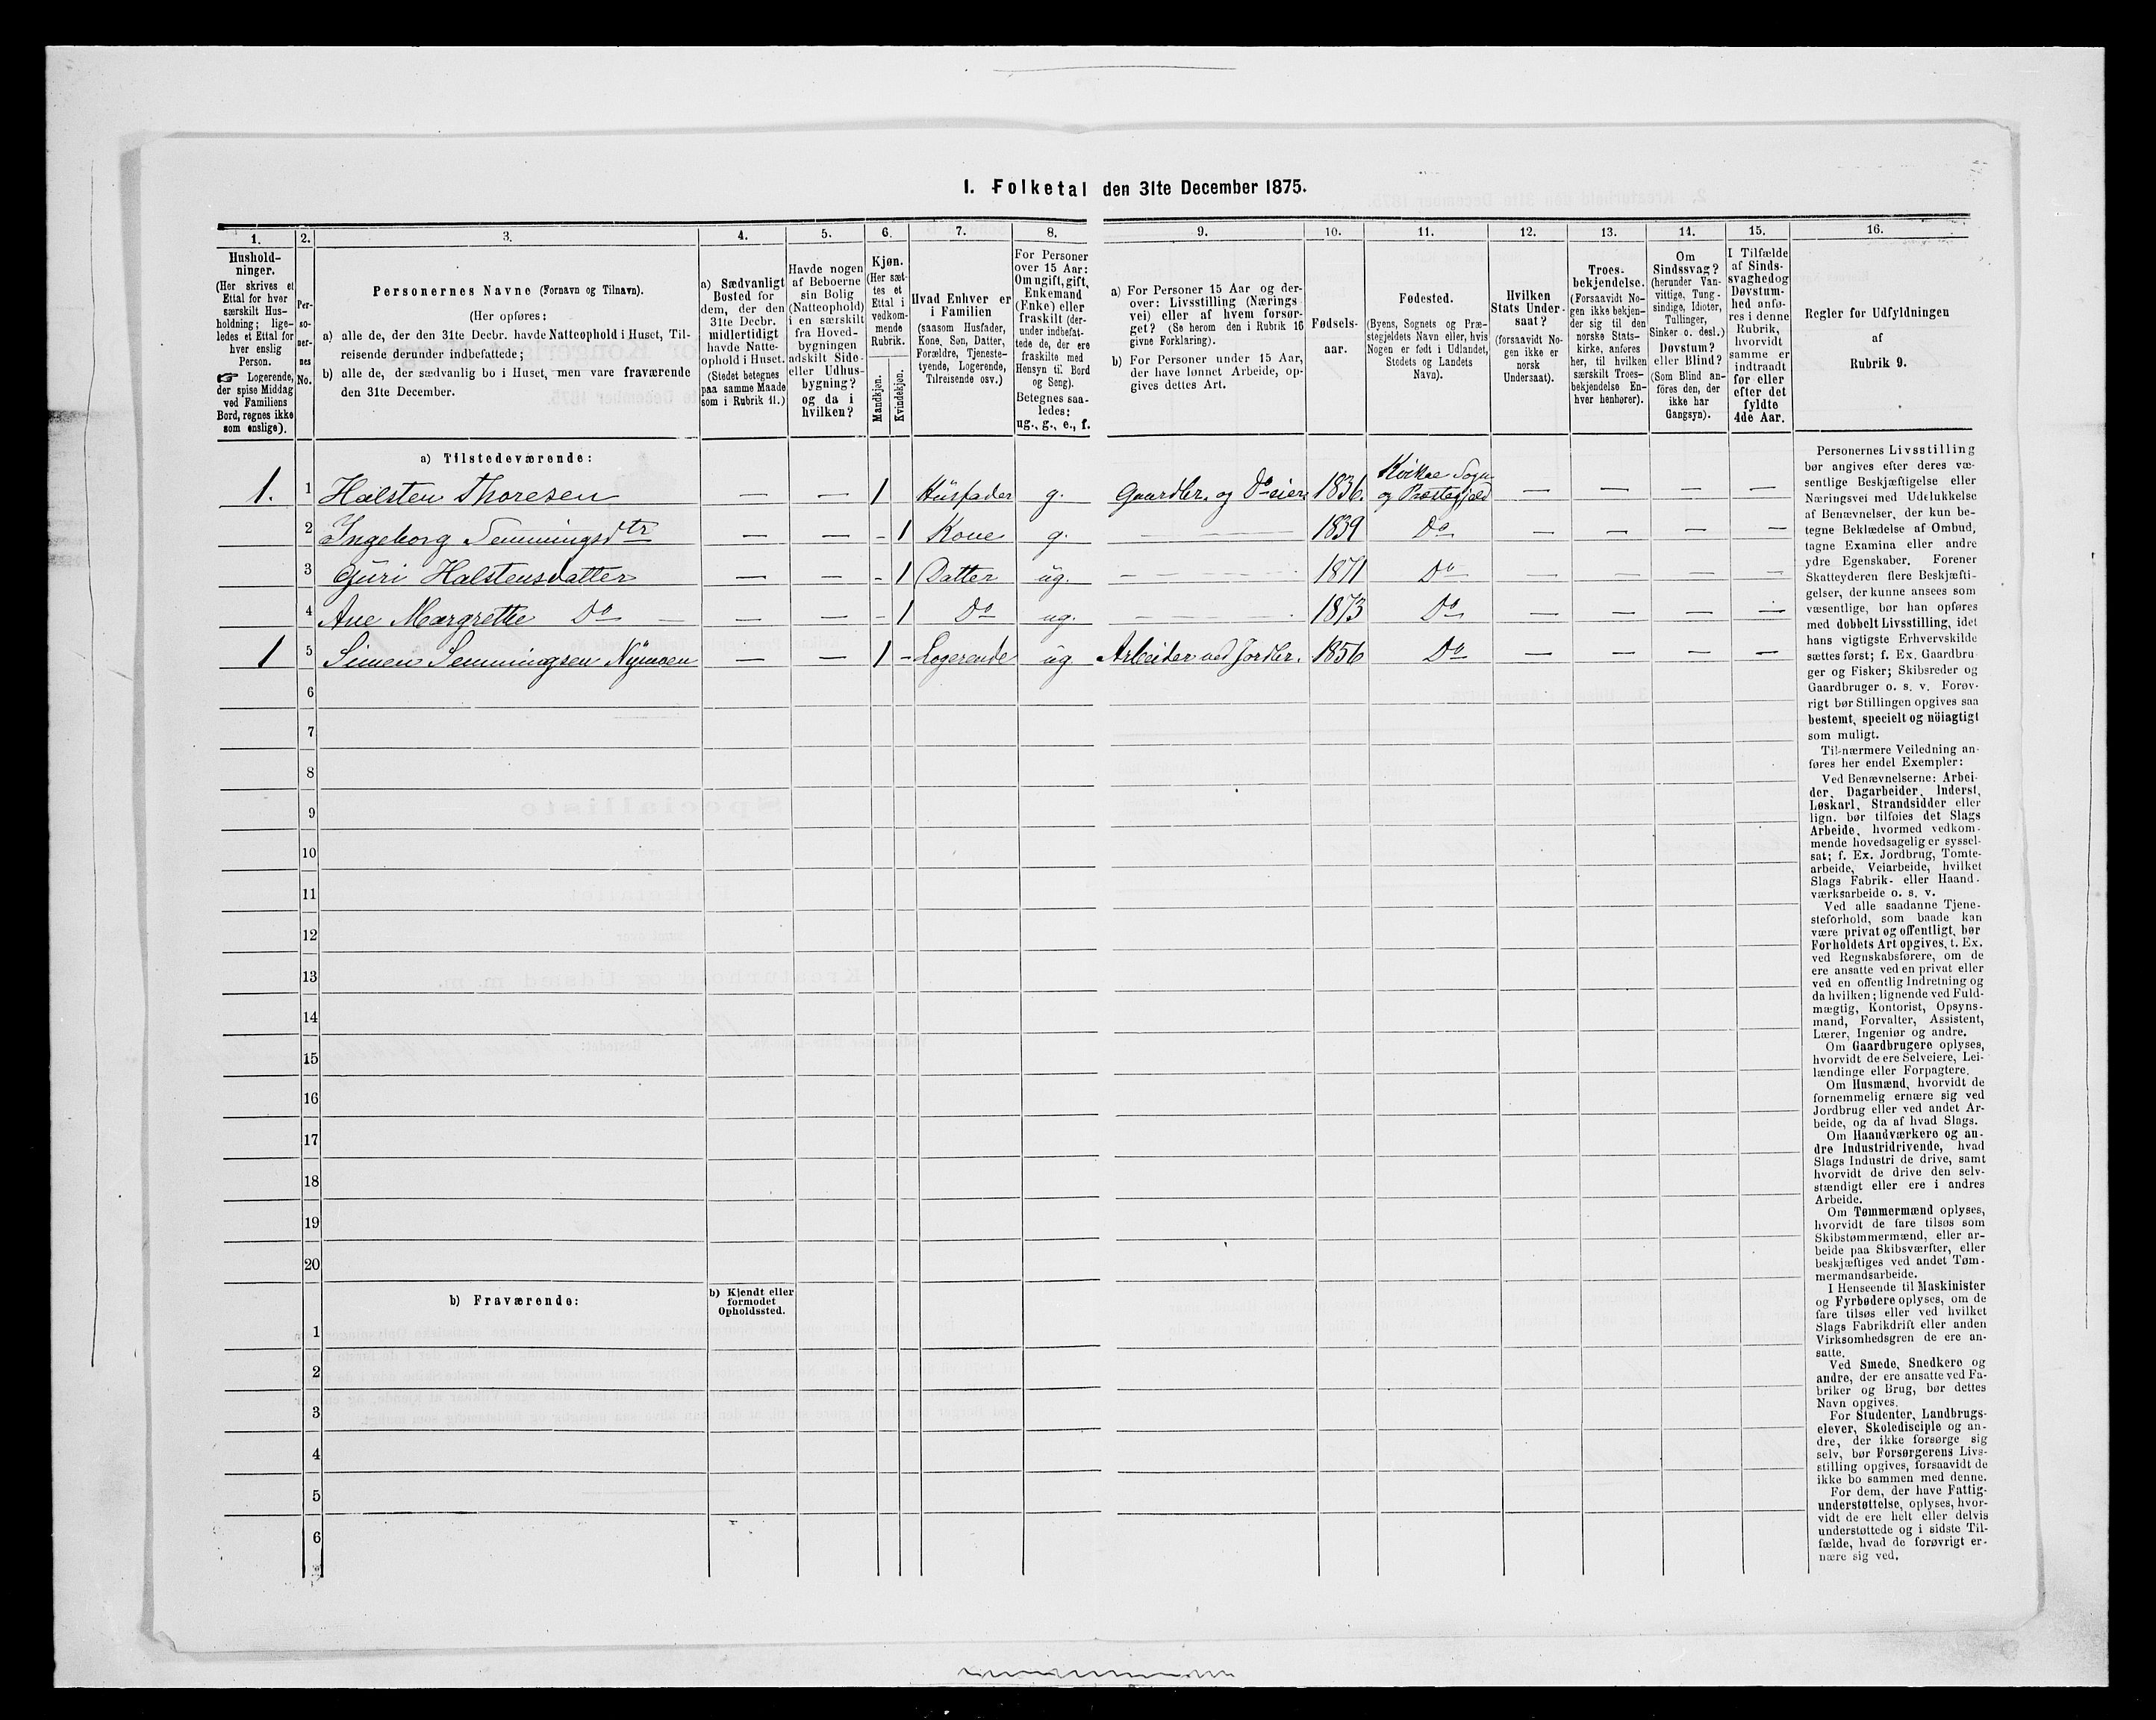 I. Folketal den 31te December 1875.
1.
Hushold-
ninger.
(Her skrives et
Ettal for hver
særskilt Hus-
holdning; lige-
ledes et Ettal for
hver enslig
Person.
☞ Logerende,
der spise Middag
ved Familiens
Bord, regnes ikke
som enslige).
2.
Per-
so-
ner-
nes
No.
3.
Personernes Navne (Fornavn og Tilnavn).
(Her opføres:
a) alle de, der den 31te Decbr. havde Natteophold i Huset, Til-
reisende derunder indbefattede;
b) alle de, der sædvanlig bo i Huset, men vare fraværende
den 31te December.
4.
a) Sædvanligt
Bosted for
dem, der den
31te Decbr.
midlertidigt
havde Natte-
ophold i Huset.
(Stedet betegnes
paa samme Maade
som i Rubrik 11.)
5.
Havde nogen
af Beboerne
sin Bolig
(Natteophold)
i en særskilt
fra Hoved-
bygningen
adskilt Side-
eller Udhus-
bygning?
og da i
hvilken?
6.
Kjøn.
(Her sæt-
tes et
Ettal i
vedkom-
mende
Rubrik.
Mandkjøn.
Kvindekjøn.
7.
Hvad Enhver er
i Familien
(saasom Husfader,
Kone, Søn, Datter,
Forældre, Tjeneste-
tyende, Logerende,
Tilreisende osv.)
8.
For Personer
over 15 Aar:
Om ugift, gift,
Enkemand
(Enke) eller
fraskilt (der-
under indbefat-
tede de, der ere
fraskilte med
Hensyn til Bord
og Seng).
Betegnes saa-
ledes:
ug., g., e., f.
9.
a) For Personer 15 Aar og der-
over: Livsstilling (Nærings
vei) eller af hvem forsør-
get? (Se herom den i Rubrik 16
givne Forklaring).
b) For Personer under 15 Aar,
der have lønnet Arbeide, op-
gives dettes Art.
10.
Fødsels-
aar.
11.
Fødested.
(Byens, Sognets og Præ-
stegjeldets Navn eller, hvis
Nogen er født i Udlandet,
Stedets og Landets
Navn).
12.
Hvilken
Stats Under-
saat?
(forsaavidt No-
gen ikke er
norsk
Undersaat).
13.
Troes-
bekjendelse.
(Forsaavidt No-
gen ikke bekjen-
der sig til den
norske Stats-
kirke, anføres
her, til hvilken
særskilt Troes-
bekjendelse En-
hver henhører).
14.
Om
Sindssvag?
(herunder Van-
vittige, Tung-
sindige, Idioter,
Tullinger,
Sinker o. desl.)
Døvstum?
eller Blind?
(Som Blind an-
föres den, der
ikke har
Gangsyn).
15.
I Tilfælde
af Sinds-
svaghedog
Døvstum-
hed anfø-
res i denne
Rubrik,
hvorvidt
samme er
indtraadt
før eller
efter det
fyldte
4de Aar.
16.
Regler for Udfyldningen
af
Rubrik 9.
a) Tilstedeværende:
1. 1 Halsten Thoresen — — 1 Husfader g. Gaardbr. og Do eier 1836. Kvikne Sogn og Præstegjeld — — — —
2 Ingeborg Semmingsdtr — — - 1 Kone g. — 1839 Do — — — —
3 Guri Halstensdatter — — - 1 Datter ug. — 1871 Do — — — —
4 Ane Margrethe Do — — — - 1 Do ug. — 1873 Do — — — —
1 5 Simen Semmingsen Nymoen — — 1 - Logerende ug. Arbeider ved Jordbr. 1856 Do — — — —
6
7
8
9
10
11
12
13
14
15
16
17
18
19
20
b) Fraværende:
b) Kjendt eller
formodet
Opholdssted.
1
2
3
4
5
6
Personernes Livsstilling
bør angives efter deres væ-
sentlige Beskjæftigelse eller
Næringsvei med Udelukkelse
af Benævnelser, der kun be-
tegne Beklædelse af Ombud,
tagne Examina eller andre
ydre Egenskaber. Forener
Skatteyderen flere Beskjæfti-
gelser, der kunne ansees som
væsentlige, bør han opføres
med dobbelt Livsstilling, idet
hans vigtigste Erhvervskilde
sættes først; f. Ex. Gaardbru-
ger og Fisker; Skibsreder og
Gaardbruger o. s. v. Forøv-
rigt bør Stillingen opgives saa
bestemt, specielt og nöiagtigt
som muligt.
Til nærmere Veiledning an-
føres her endel Exempler:
Ved Benævnelserne: Arbei-
der, Dagarbeider, Inderst,
Løskarl, Strandsidder eller
lign. bør tilføies det Slags
Arbeide, hvormed vedkom-
mende hovedsagelig er syssel-
sat; f. Ex. Jordbrug, Tomte-
arbeide, Veiarbeide, hvilket
Slags Fabrik- eller Haand-
værksarbeide o. s. v.
Ved alle saadanne Tjene-
steforhold, som baade kan
være privat og offentligt, bør
Forholdets Art opgives, t. Ex.
ved Regnskabsførere, om de
ere ansatte ved en privat eller
ved en offentlig Indretning og
da hvilken; lignende ved Fuld-
mægtig, Kontorist, Opsyns-
mand, Forvalter, Assistent,
Lærer, Ingeniør og andre.
Om Gaardbrugere oplyses,
hvorvidt de ere Selveiere, Lei-
lændinge eller Forpagtere.
Om Husmænd, hvorvidt de
fornemmelig ernære sig ved
Jordbrug eller ved andet Ar-
beide, og da af hvad Slags.
Om Haandværkere og an-
dre Industridrivende, hvad
Slags Industri de drive, samt
hvorvidt de drive den selv-
stændigt eller ere i andres
Arbeide.
Om Tømmermænd oplyses,
hvorvidt de fare tilsøs som
Skibstømmermænd, eller ar-
beide paa Skibsværfter, eller
beskjæftiges ved andet Tøm-
mermandsarbeide.
I Henseende til Maskinister
og Fyrbødere oplyses, om de
fare tilsøs eller ved hvilket
Slags Fabrikdrift eller anden
Virksomhedsgren de ere an-
satte.
Ved Smede, Snedkere og
andre, der ere ansatte ved Fa-
briker og Brug, bør dettes
Navn opgives.
For Studenter, Landbrugs-
elever, Skoledisciple og an-
dre, der ikke forsørge sig
selv, bør Forsørgerens Livs-
stilling opgives, forsaavidt de
ikke bo sammen med denne.
For dem, der have Fattig-
understøttelse, oplyses, hvor-
vidt de ere helt eller delvis
understøttede og i sidste Til-
fælde, hvad de forøvrigt er-
nære sig ved.